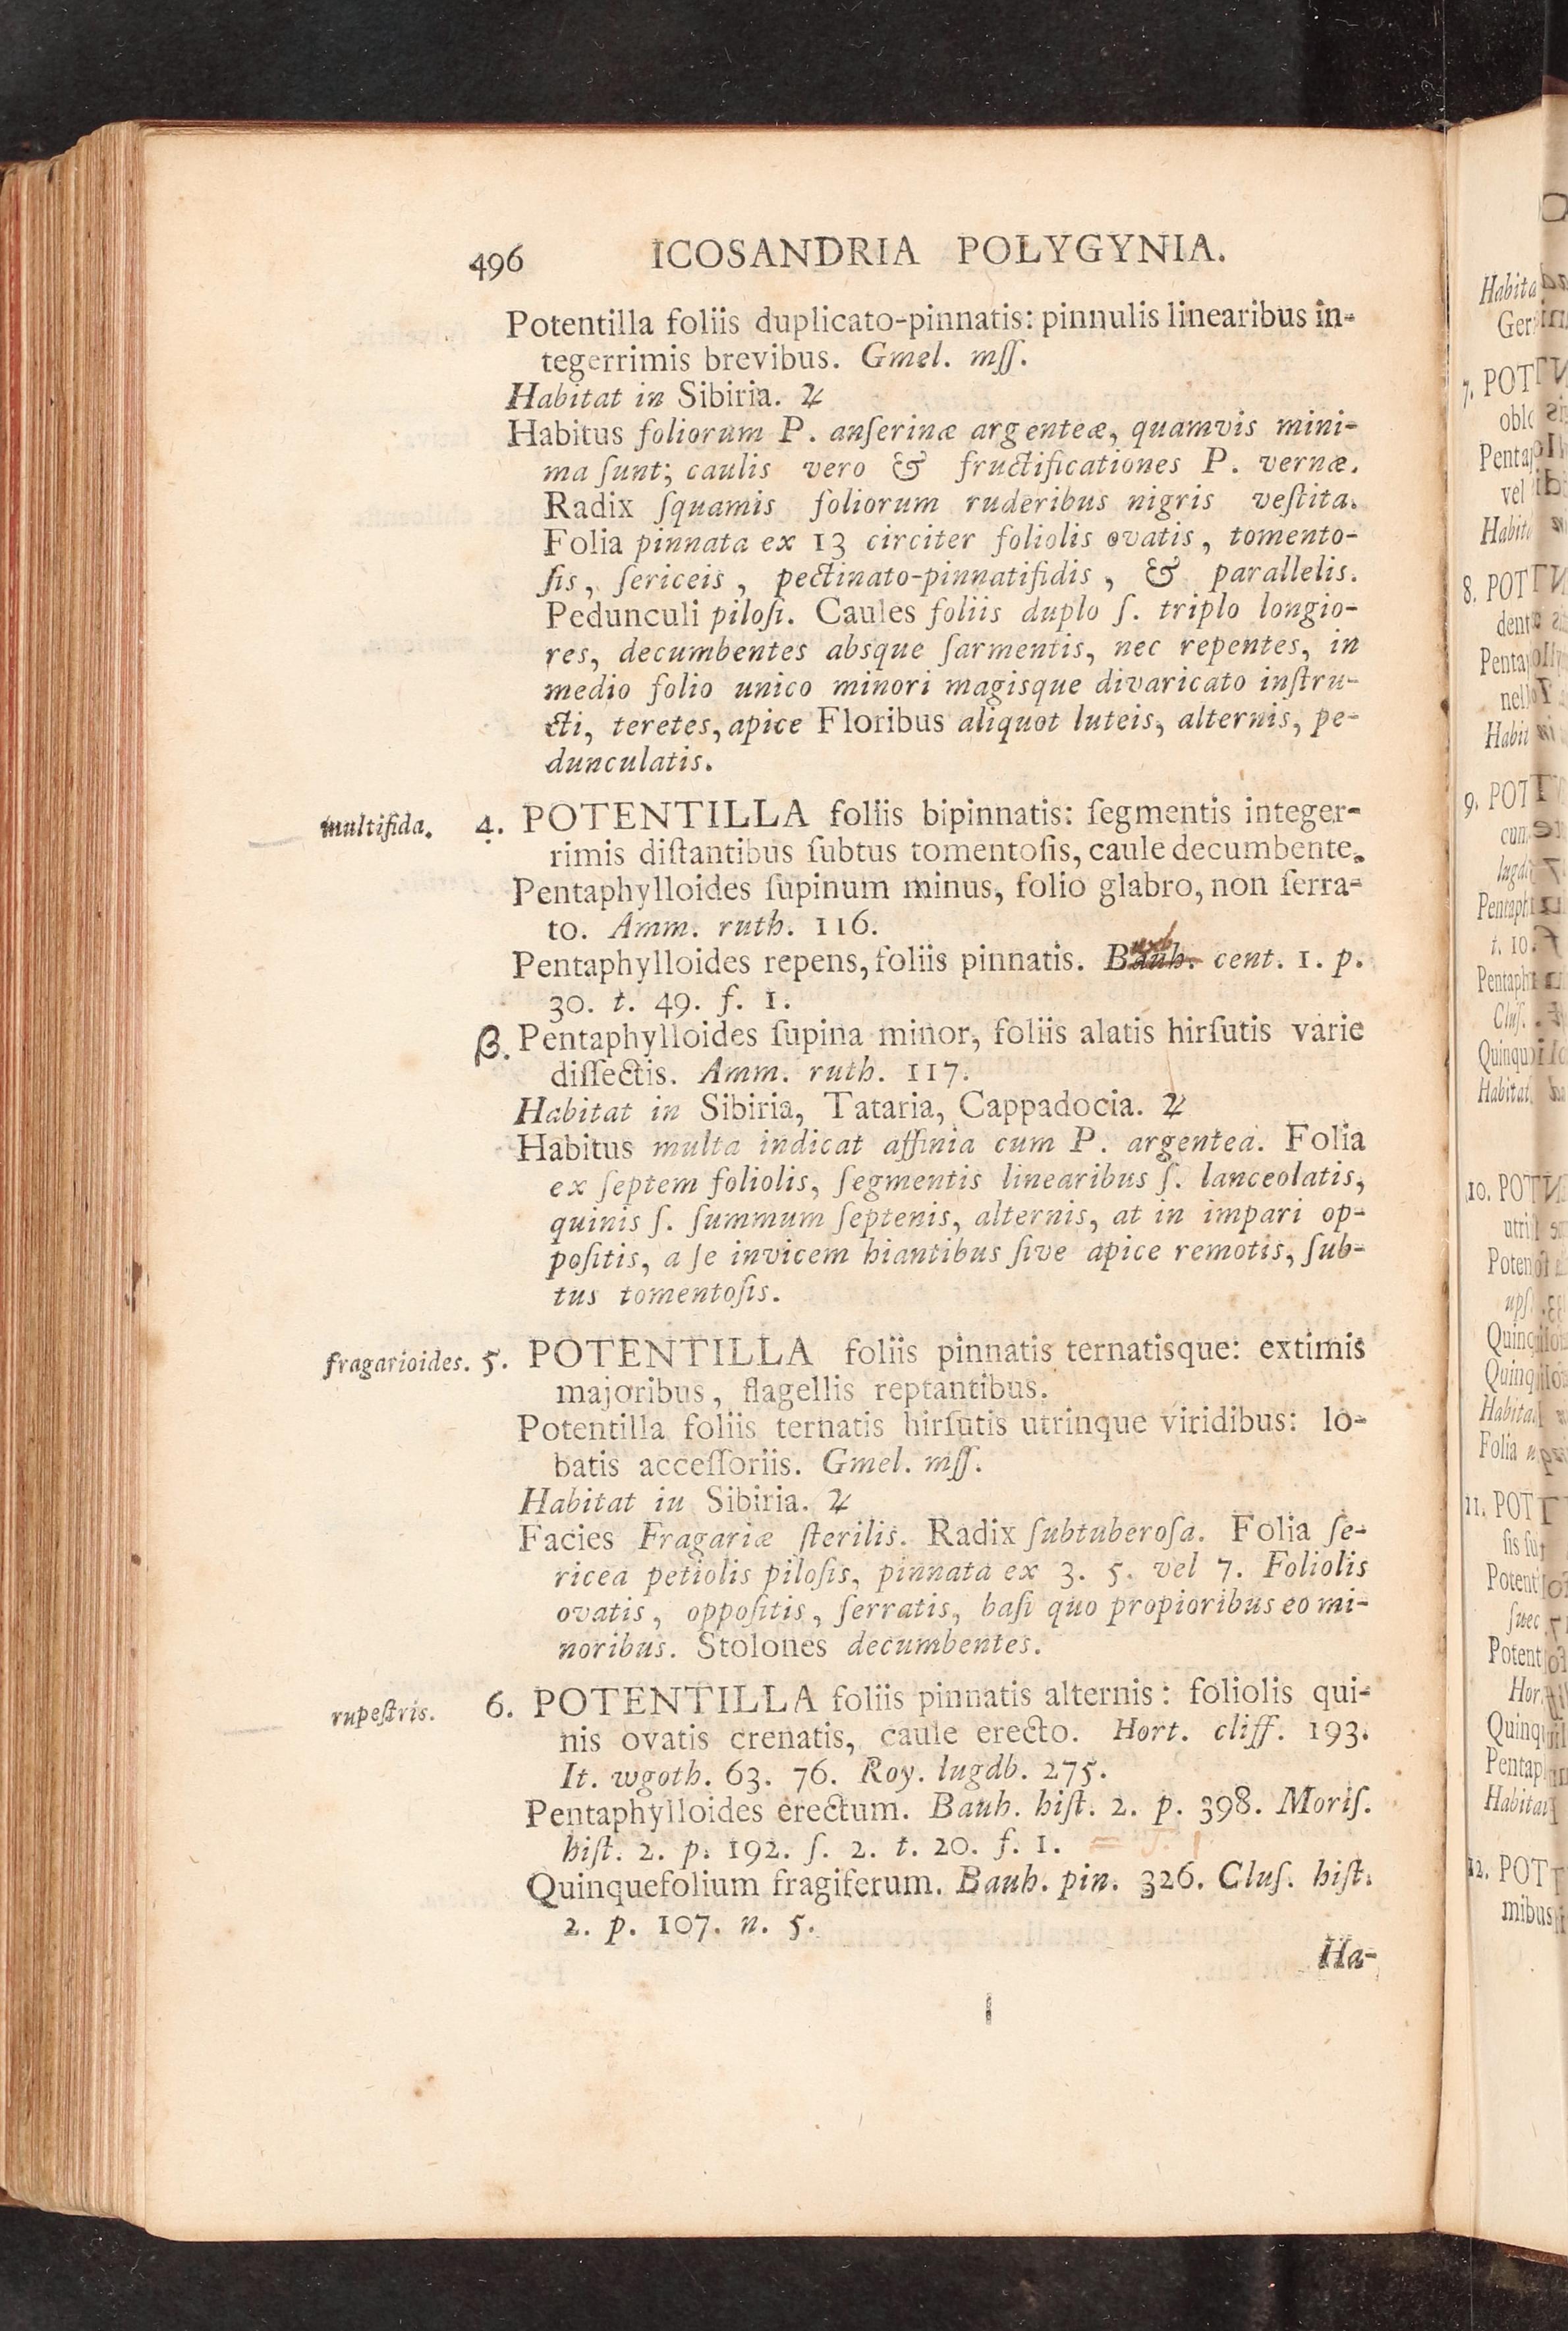 496 ICOSANDRIA POLYGYNIA.
Potentilla foliis duplicato-pinnatis: pinnulis linearibus in-
tegerrimis brevibus. Gmel. mſſ.
Habitat in Sibiria. ♃
Habitus foliorum P. anſerinæ argenteæ, quamvis mini-
ma ſunt; caulis vero & fructificationes P. vernæ.
Radix ſquamis foliorum ruderibus nigris veſtita.
Folia pinnata ex 13 circiter foliolis ovatis, tomento-
ſis, ſericeis, pectinato-pinnatifidis, & parallelis.
Pedunculi piloſi. Caules foliis duplo ſ. triplo longio-
res, decumbentes absque ſarmentis, nec repentes, in
medio folio unico minori magisque divaricato inſtru-
cti, teretes, apice Floribus aliquot luteis, alternis, pe-
dunculatis.
multifida. 4. POTENTILLA foliis bipinnatis: ſegmentis integer-
rimis diſtantibus ſubtus tomentoſis, caule decumbente.
Pentaphylloides ſupinum minus, folio glabro, non ſerra-
to. Amm. ruth. 116.
uxb
Pentaphylloides repens, foliis pinnatis. Bauh. cent. 1. p.
30. t. 49. f. 1.
β. Pentaphylloides ſupina minor, foliis alatis hirſutis varie
diſſectis. Amm. ruth. 117.
Habitat in Sibiria, Tataria, Cappadocia. ♃
Habitus multa indicat affinia cum P. argentea. Folia
ex ſeptem foliolis, ſegmentis linearibus ſ. lanceolatis,
quinis ſ. ſummum ſeptenis, alternis, at in impari op-
poſitis, a ſe invicem hiantibus ſive apice remotis, ſub-
tus tomentoſis.
fragarioides. 5. POTENTILLA foliis pinnatis ternatisque: extimis
majoribus, flagellis reptantibus.
Potentilla foliis ternatis hirſutis utrinque viridibus: lo-
batis acceſſoriis. Gmel. mſſ.
Habitat in Sibiria. ♃
Facies Fragariæ ſterilis. Radix ſubtuberoſa. Folia ſe-
ricea petiolis piloſis, pinnata ex 3. 5. vel 7. Foliolis
ovatis, oppoſitis, ſerratis, baſi quo propioribus eo mi-
noribus. Stolones decumbentes.
rupeſtris. 6. POTENTILLA foliis pinnatis alternis: foliolis qui-
nis ovatis crenatis, caule erecto. Hort. cliff. 193.
It. wgoth. 63. 76. Roy. lugdb. 275.
Pentaphylloides erectum. Bauh. hiſt. 2. p. 398. Moriſ.
hiſt. 2. p. 192. ſ. 2. t. 20. f. 1.
Quinquefolium fragiferum. Bauh. pin. 326. Cluſ. hiſt.
2. p. 107. n. 5.
Ha-
7. POT
8. POT
9. POT
10. POT
11. POT
12. POT